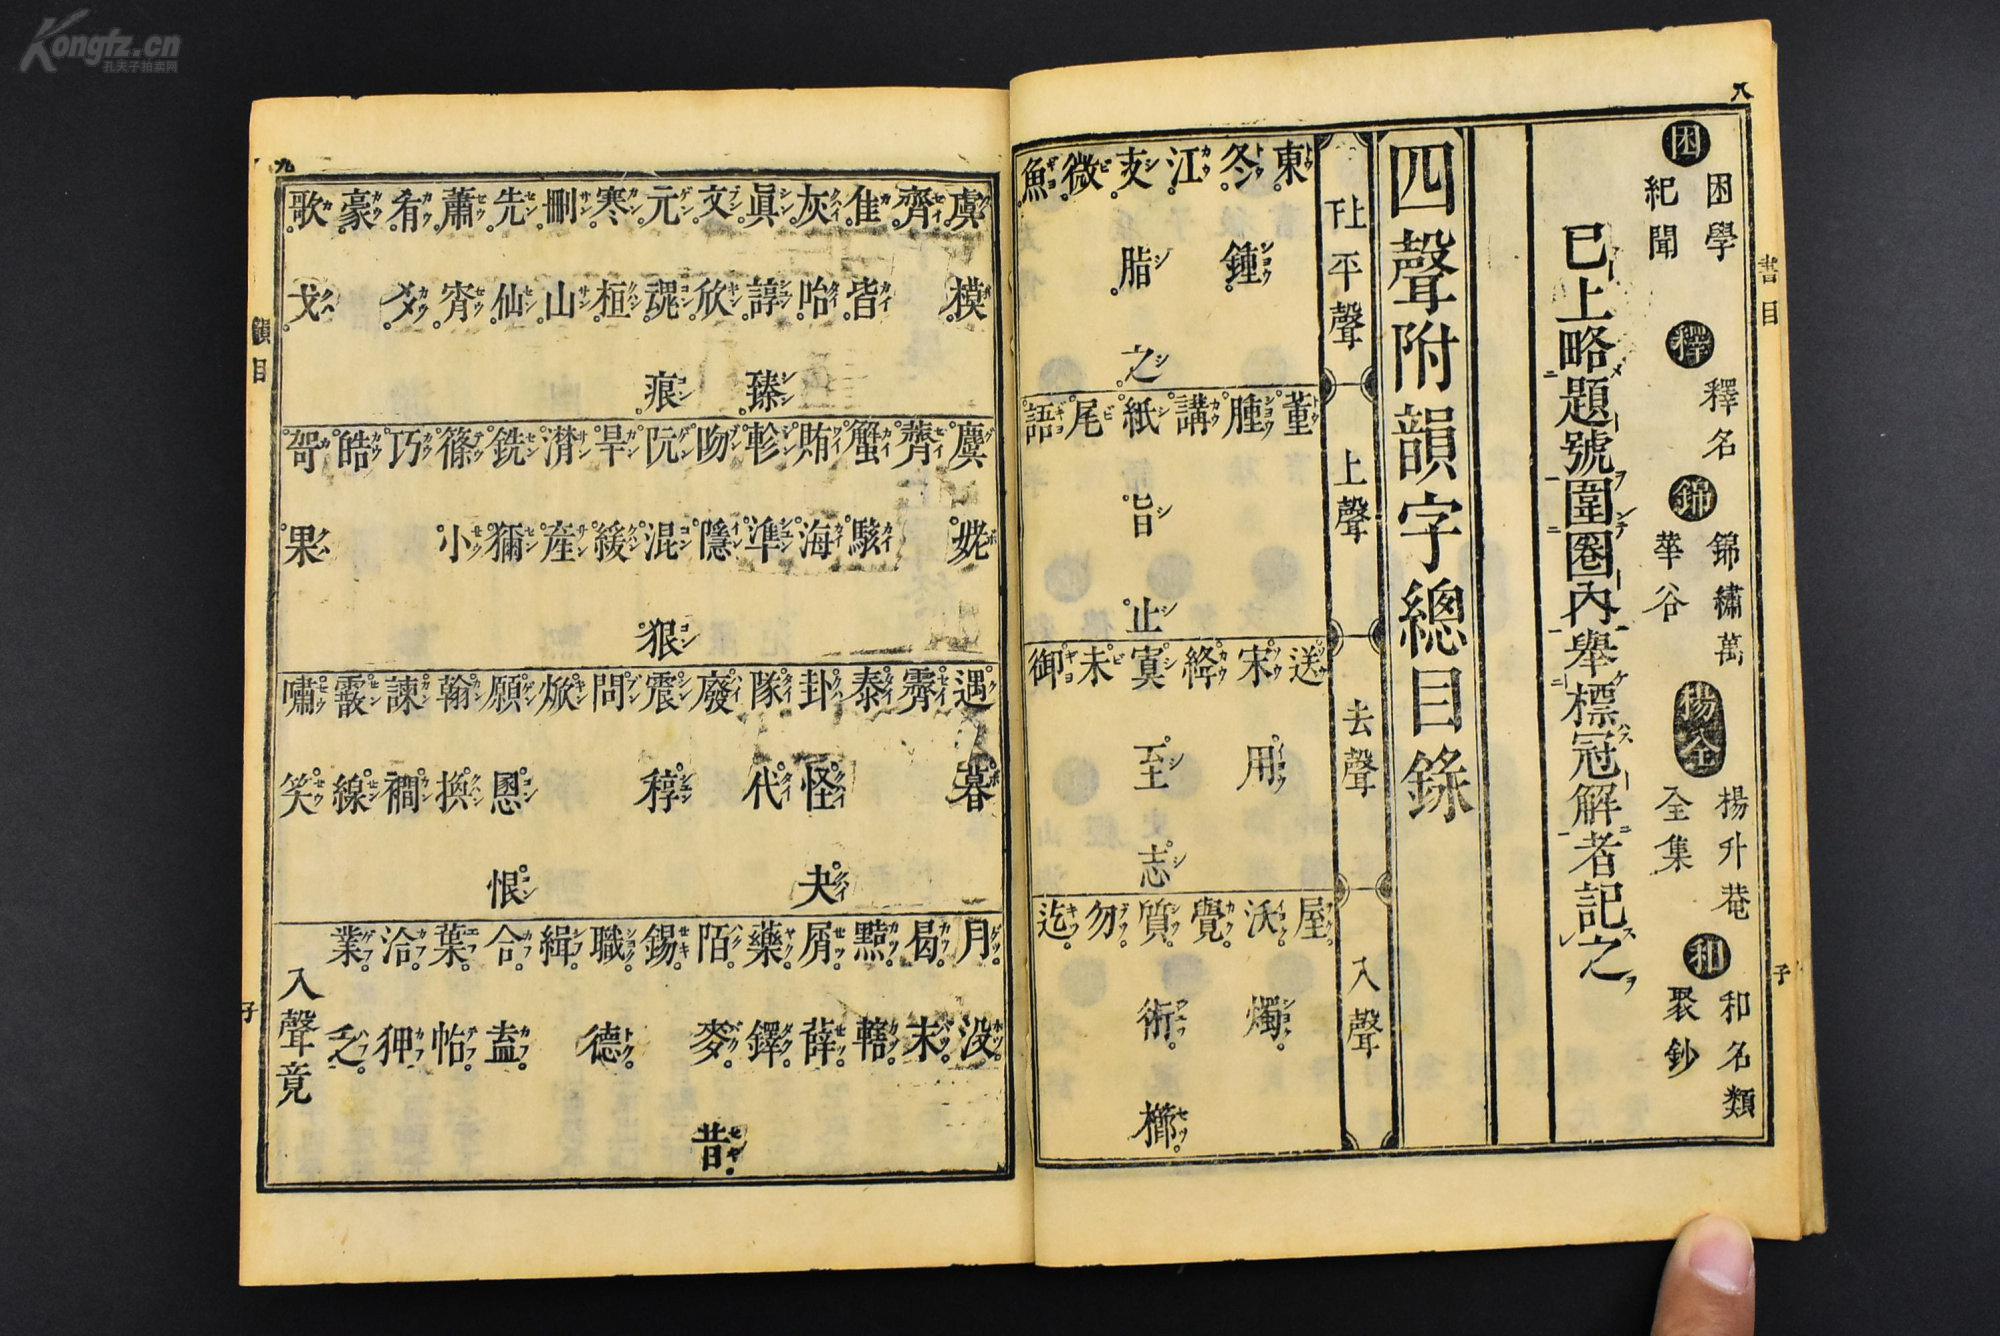 Kongfz.cn
孔夫子拍卖网
八
書目
子
困
困學
紀聞
釋
釋名
錦
錦繡萬
華谷
楊全
楊升菴
全集
和
和名類
聚鈔
已上略題號圍圈內舉標冠解者記之
四聲附韻字總目錄
上平聲
上聲
去聲
入聲
東
冬 鍾
江
支 脂 之
微
魚
董
腫
講
紙 旨 止
尾
語
送
宋 用
絳
寘 至 志
未
御
屋
沃 燭
覺
質 術 櫛
勿
迄
九
韻目
子
虞 模
齊
佳 皆
灰 咍
眞 諄 臻
文 欣
元 魂 痕
寒 桓
刪 山
先 仙
蕭 宵
肴
豪
歌 戈
麌 姥
薺
蟹 駭
賄 海
軫 準
吻 隱
阮 混 狠
旱 緩
潸 産
銑 獮
篠 小
巧
皓
哿 果
遇 暮
霽
泰
卦 怪 夬
隊 代
廢
震 稕
問
焮
願 慁 恨
翰 換
諫 襉
霰 線
嘯 笑
月 没
曷 末
黠 轄
屑 薛
藥 鐸
陌 麥 昔
錫
職 德
緝
合 盍
葉 帖
洽 狎
業 乏
入聲竟